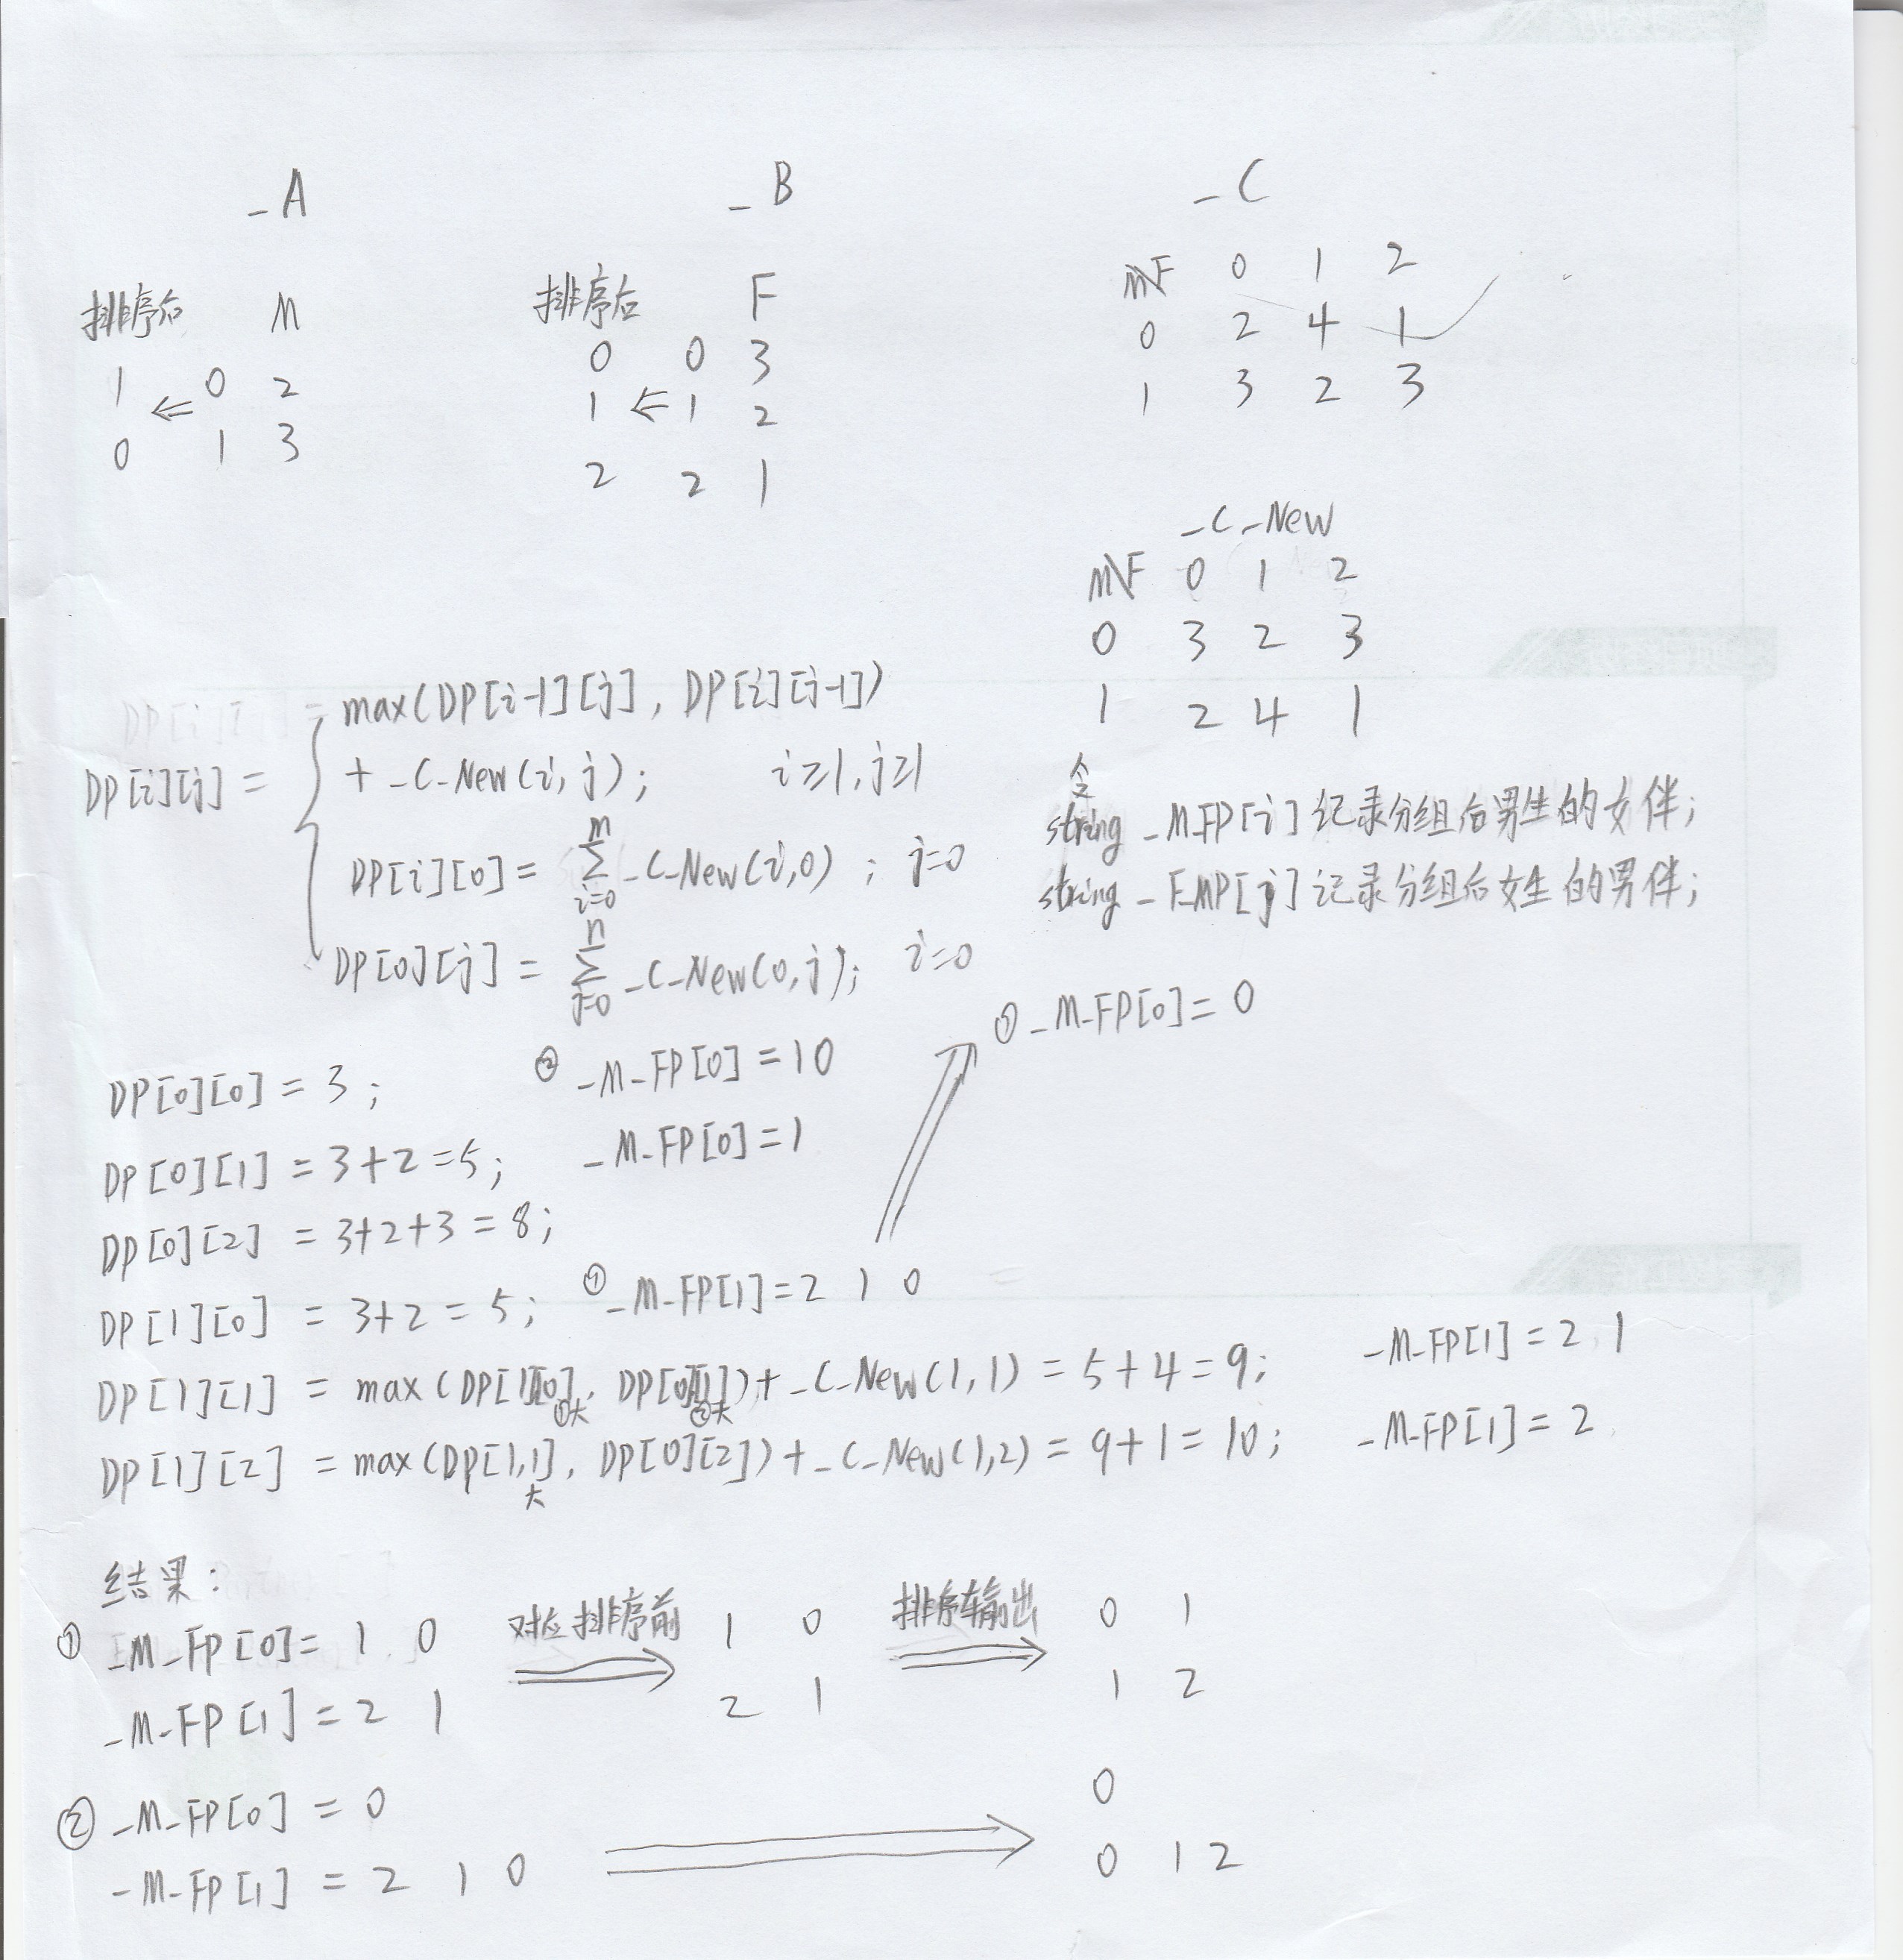 _A
_B
_C
排序后 M
1 ⇐ 0 2
0 1 3
排序后 F
0 0 3
1 ⇐ 1 2
2 2 1
M\F 0 1 2
0 2 4 1
1 3 2 3
_C_New
M\F 0 1 2
0 3 2 3
1 2 4 1
DP[i][j] =
max(DP[i-1][j], DP[i][j-1])
+ _C_New(i, j); i≥1, j≥1
DP[i][0] = ∑ i=0 m _C_New(i,0) ; j=0
DP[0][j] = ∑ j=0 n _C_New(0,j); i=0
令
string _M_FP[i] 记录分组后男生的女伴;
string _F_MP[j] 记录分组后女生的男伴;
① _M_FP[0] = 0
DP[0][0] = 3 ; ② _M_FP[0] = 1 0
DP[0][1] = 3+2 = 5; _M_FP[0] = 1
DP[0][2] = 3+2+3 = 8;
DP[1][0] = 3+2 = 5; ① _M_FP[1] = 2 1 0
DP[1][1] = max(DP[1][0], DP[0][1]) + _C_New(1,1) = 5+4 = 9; _M_FP[1] = 2 1
①大 ②大
DP[1][2] = max(DP[1,1], DP[0][2]) + _C_New(1,2) = 9+1 = 10; _M_FP[1] = 2
大
结果:
① _M_FP[0] = 1 0 对应排序前 1 0 排序输出 0 1
_M_FP[1] = 2 1 2 1 1 2
② _M_FP[0] = 0 0
_M_FP[1] = 2 1 0 0 1 2